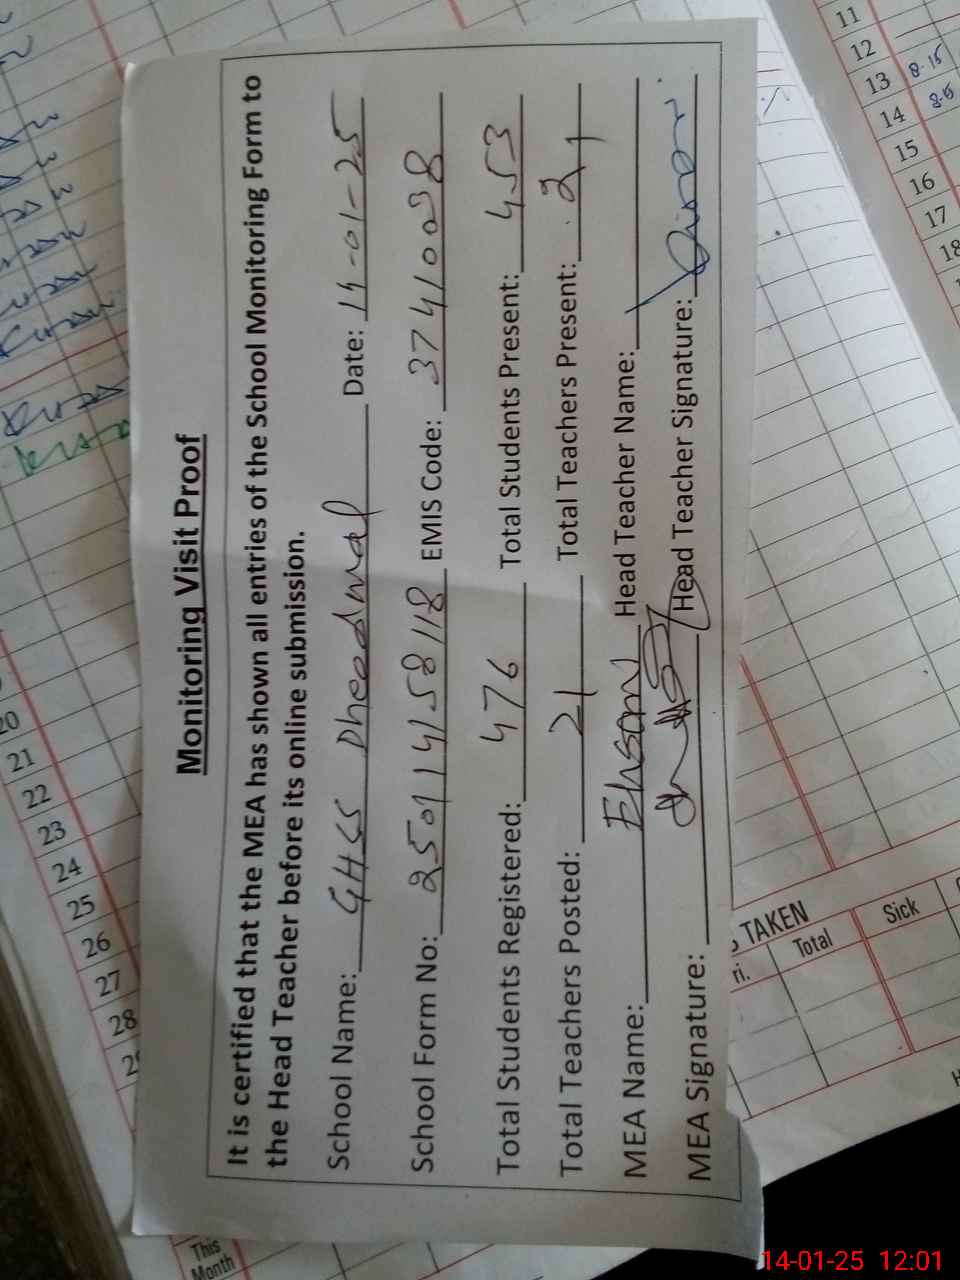 Monitoring Visit Proof
It is certified that the MEA has shown all entries of the School Monitoring Form to
the Head Teacher before its online submission.
School Name: GHSS Dheedmal Date: 14-01-25
School Form No: 250114158118 EMIS Code: 37410038
Total Students Registered: 476 Total Students Present: 453
Total Teachers Posted: 21 Total Teachers Present: 21
MEA Name: Ehsan Head Teacher Name:
MEA Signature: Head Teacher Signature:
11
12
13 8-15
14
15
16
17
18
20
21
22
23
24
25
26
27
28
TAKEN
ri. Total Sick
This
Month
14-01-25 12:01